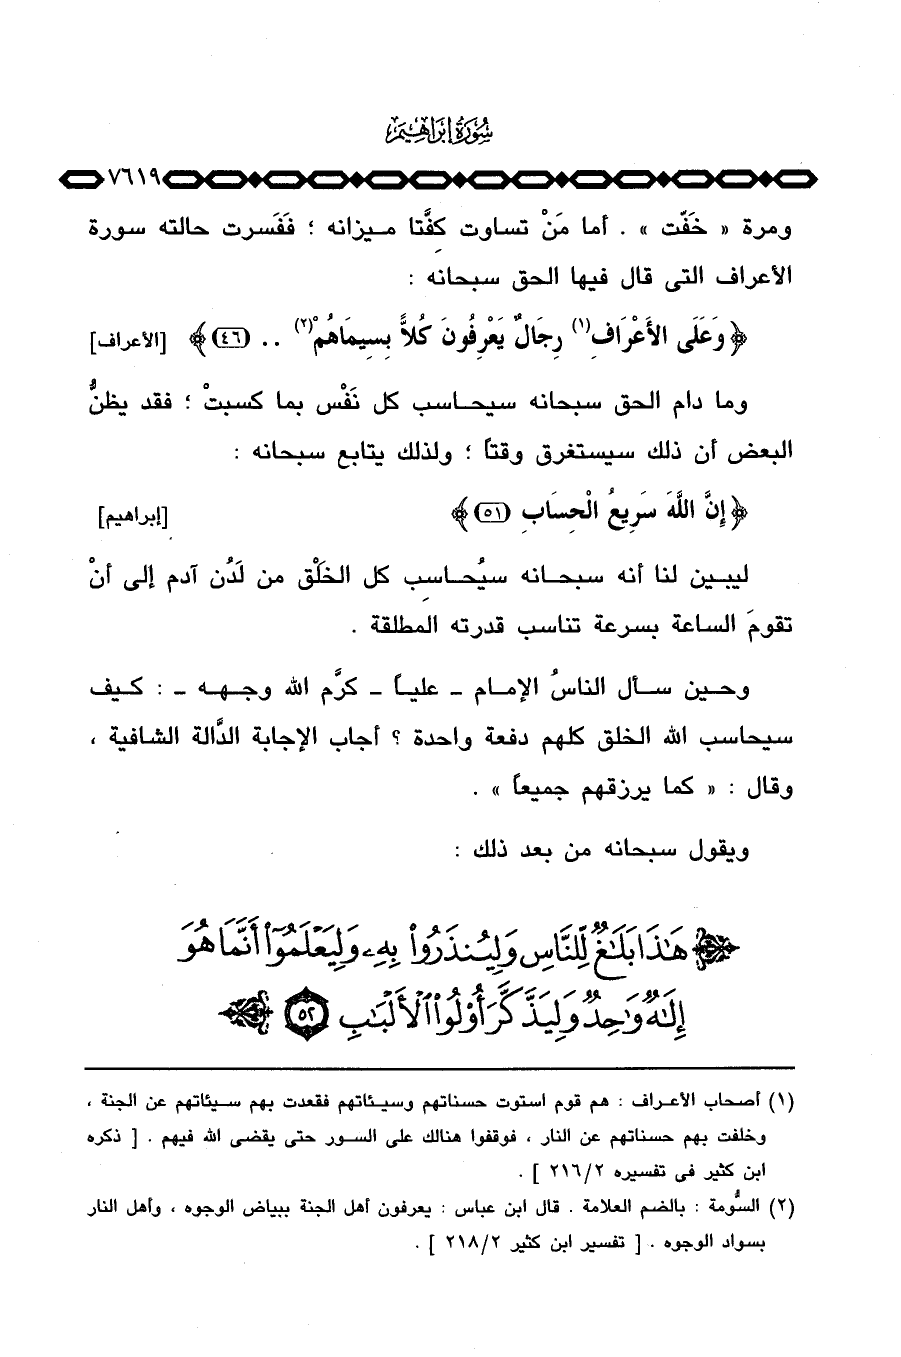 سُورَةُ إِبْرَاهِيم
٧٦١٩
ومرة « خَفَّت » . أما مَنْ تساوت كفَّتا ميزانه ؛ ففَسرت حالته سورة
الأعراف التى قال فيها الحق سبحانه :
﴿ وَعَلَى الأَعْرَافِ(١) رِجَالٌ يَعْرِفُونَ كُلاًّ بِسِيمَاهُمْ(٢) .. (٤٦) ﴾ [الأعراف]
وما دام الحق سبحانه سيحاسب كل نَفْس بما كسبتْ ؛ فقد يظنُّ
البعض أن ذلك سيستغرق وقتاً ؛ ولذلك يتابع سبحانه :
﴿ إِنَّ اللَّهَ سَرِيعُ الْحِسَابِ (٥١) ﴾ [إبراهيم]
ليبين لنا أنه سبحانه سيُحاسب كل الخَلْق من لَدُن آدم إلى أنْ
تقومَ الساعة بسرعة تناسب قدرته المطلقة .
وحين سأل الناسُ الإمام ـ علياً ـ كرَّم الله وجهه ـ : كيف
سيحاسب الله الخلق كلهم دفعة واحدة ؟ أجاب الإجابة الدَّالة الشافية ،
وقال : « كما يرزقهم جميعاً » .
ويقول سبحانه من بعد ذلك :
﴿ هَٰذَا بَلَٰغٌ لِّلنَّاسِ وَلِيُنذَرُوا۟ بِهِۦ وَلِيَعْلَمُوٓا۟ أَنَّمَا هُوَ
إِلَٰهٌ وَٰحِدٌ وَلِيَذَّكَّرَ أُو۟لُوا۟ ٱلْأَلْبَٰبِ ٥٢ ﴾
(١) أصحاب الأعراف : هم قوم استوت حسناتهم وسيئاتهم فقعدت بهم سيئاتهم عن الجنة ،
وخلفت بهم حسناتهم عن النار ، فوقفوا هنالك على السور حتى يقضى الله فيهم . [ ذكره
ابن كثير فى تفسيره ٢١٦/٢ ] .
(٢) السُّومة : بالضم العلامة . قال ابن عباس : يعرفون أهل الجنة ببياض الوجوه ، وأهل النار
بسواد الوجوه . [ تفسير ابن كثير ٢١٨/٢ ] .